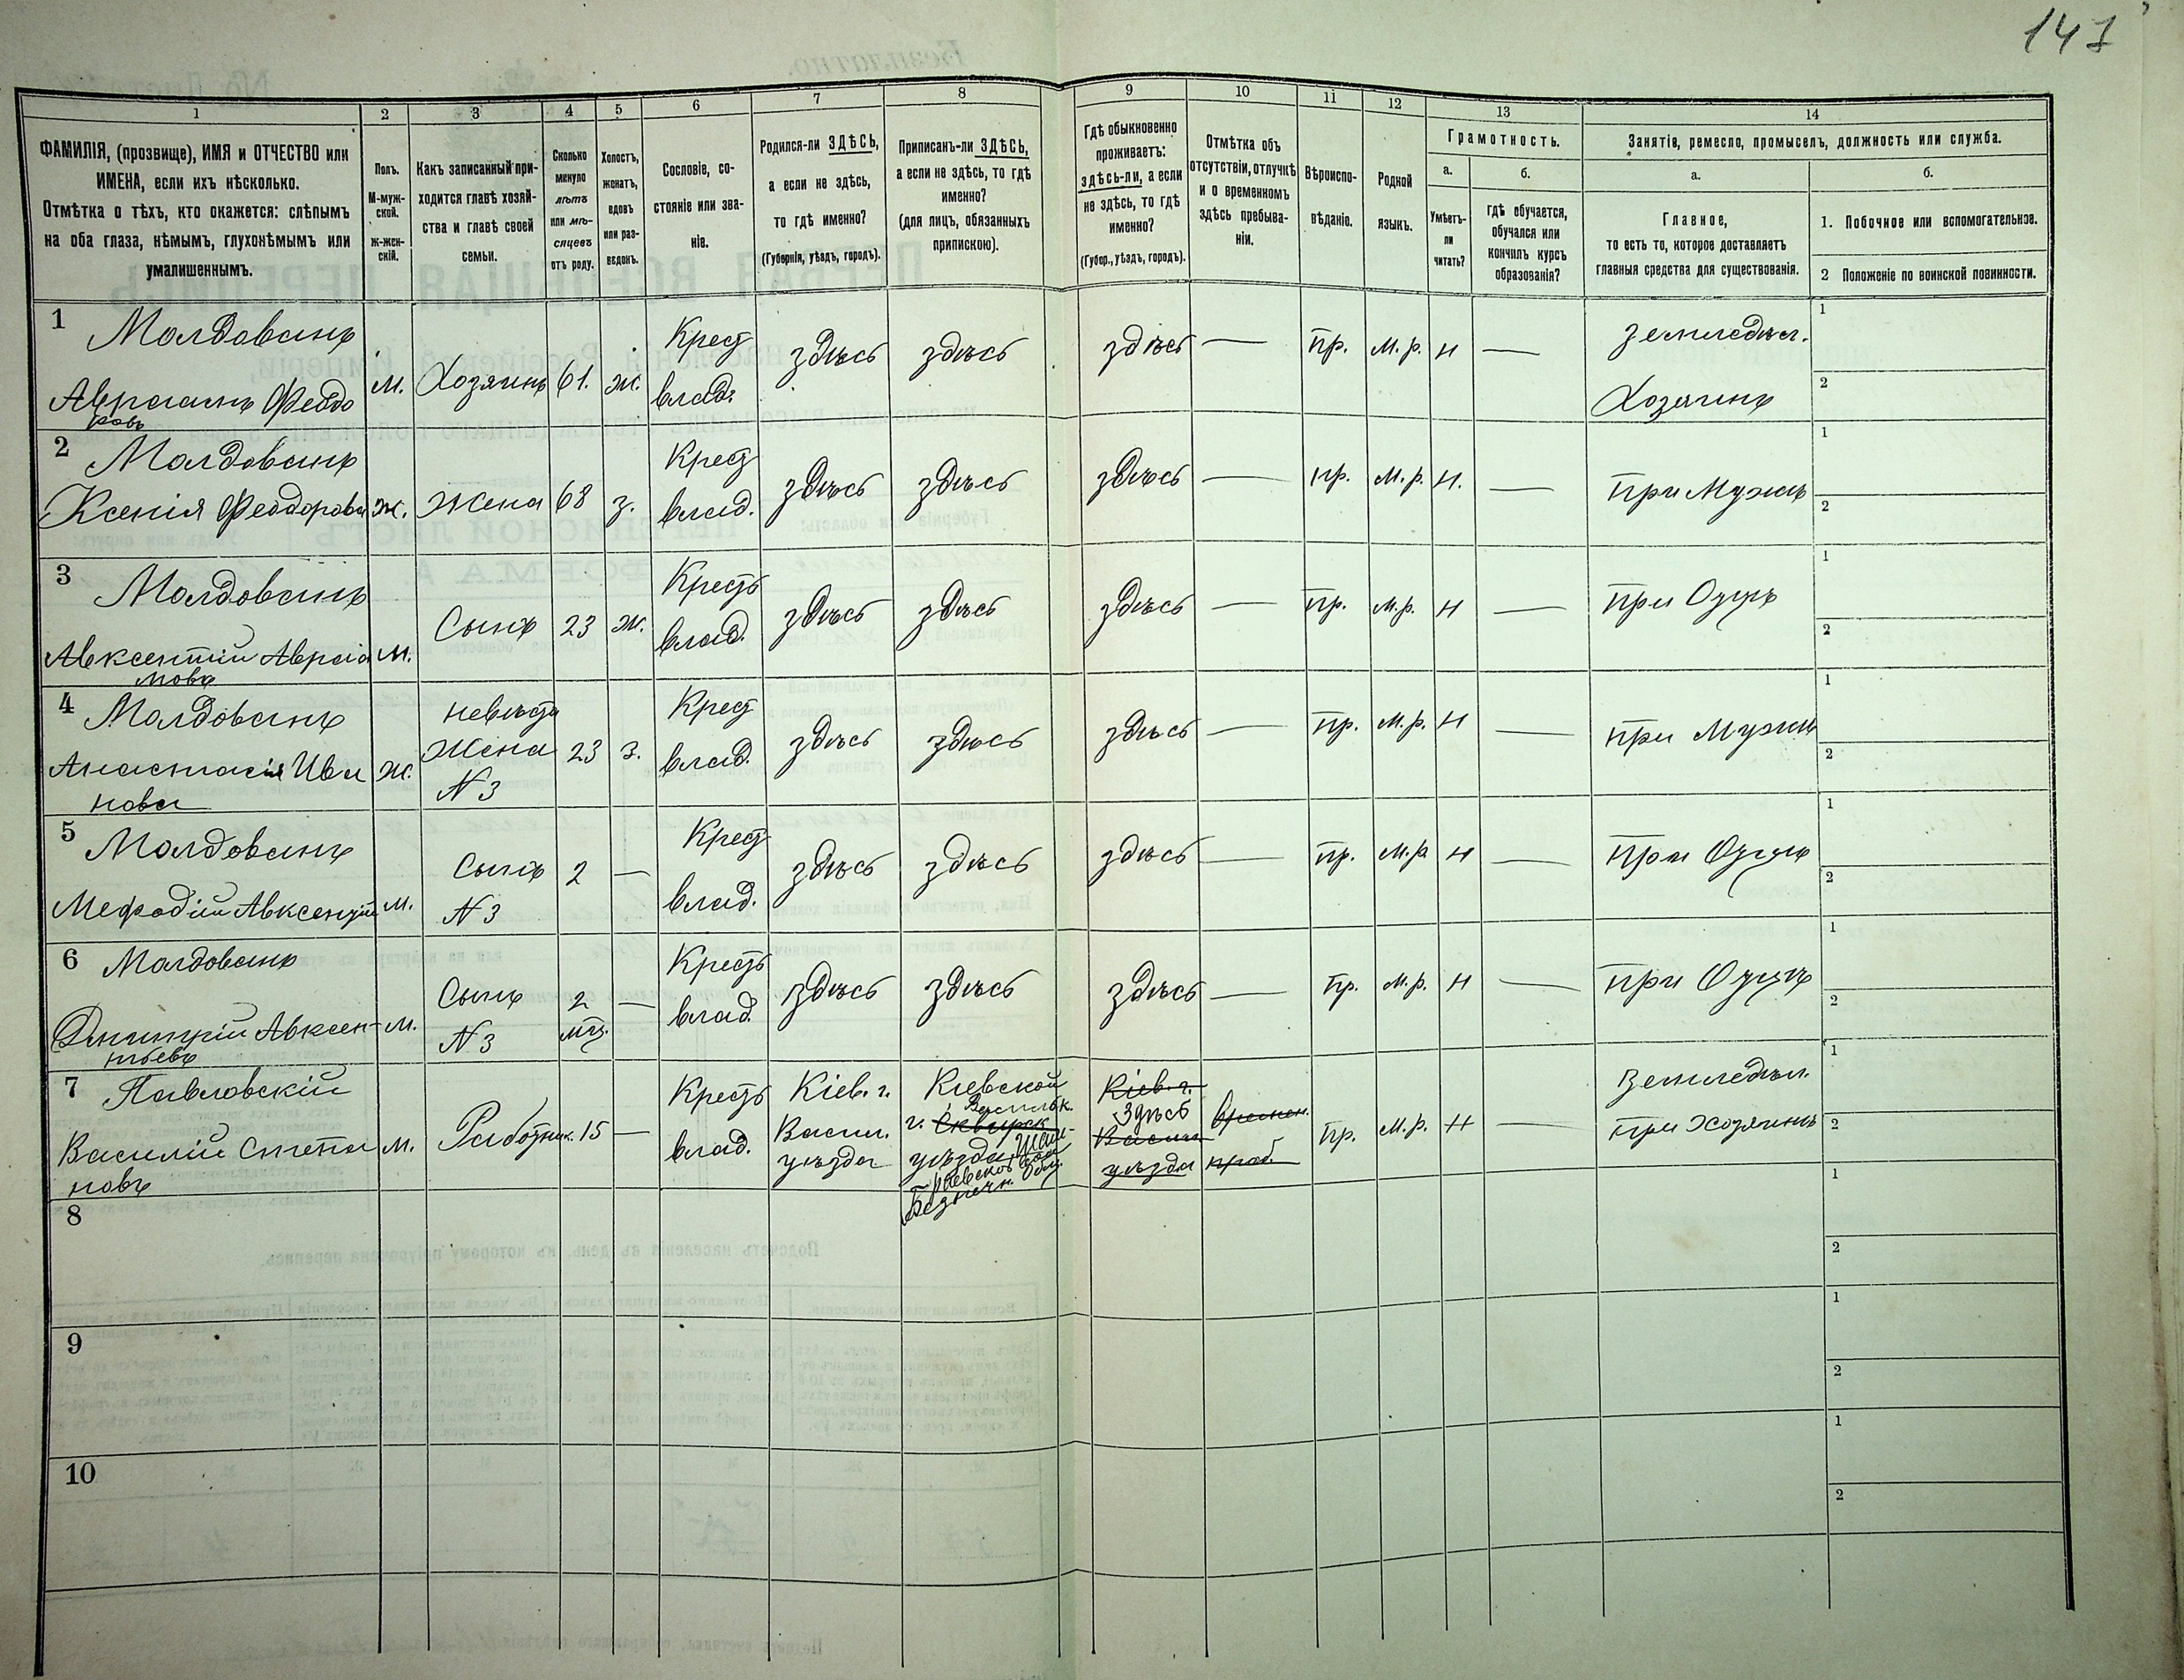 147
1 2 3 4 5 6 7 8 9 10 11 12 13 14
ФАМИЛІЯ, (прозвище), ИМЯ и ОТЧЕСТВО или
ИМЕНА, если ихъ нѣсколько.
Отмѣтка о тѣхъ, кто окажется: слѣпымъ
на оба глаза, нѣмымъ, глухонѣмымъ или
умалишеннымъ.
Полъ.
М-муж-
ской.
ж-жен-
скій.
Какъ записанный при-
ходится главѣ хозяй-
ства и главѣ своей
семьи.
Сколько
минуло
лѣтъ
или мѣ-
сяцевъ
отъ роду.
Холостъ,
женатъ,
вдовъ
или раз-
веденъ.
Сословіе, со-
стояніе или зва-
ніе.
Родился-ли ЗДѢСЬ,
а если не здѣсь,
то гдѣ именно?
(Губернія, уѣздъ, городъ).
Приписанъ-ли ЗДѢСЬ,
а если не здѣсь, то гдѣ
именно?
(для лицъ, обязанныхъ
припискою).
Гдѣ обыкновенно
проживаетъ:
здѣсь-ли, а если
не здѣсь, то гдѣ
именно?
(Губер., уѣздъ, городъ).
Отмѣтка объ
отсутствіи, отлучкѣ
и о временномъ
здѣсь пребыва-
ніи.
Вѣроиспо-
вѣданіе.
Родной
языкъ.
Грамотность.
а.
Умѣетъ-
ли
читать?
б.
гдѣ обучается,
обучался или
кончилъ курсъ
образованія?
Занятіе, ремесло, промыселъ, должность или служба.
а.
Главное,
то есть то, которое доставляетъ
главныя средства для существованія.
б.
1. Побочное или вспомогательное.
2 Положеніе по воинской повинности.
1 Молдованъ
Авраамъ Феодо
ровъ
м.
Хозяинъ
61.
ж.
Крест
влад.
здѣсь
здѣсь
здѣсь
—
пр.
м. р.
н
—
земледѣл.
Хозяинъ
1
2
2 Молдованъ
Ксенія Феодорова
ж.
Жена
68
з.
Крест
влад.
здѣсь
здѣсь
здѣсь
—
пр.
м. р.
н.
—
при Мужѣ
1
2
3 Молдованъ
Авксентій Авраа
мовъ
м.
Сынъ
23
ж.
Крестъ
влад.
здѣсь
здѣсь
здѣсь
—
пр.
м. р.
н
—
при Отцѣ
1
2
4 Молдованъ
Анастасія Ива
нова
ж.
невѣста
Жена
N 3
23
з.
Крест
влад.
здѣсь
здѣсь
здѣсь
—
пр.
м. р.
н
—
при Мужѣ
1
2
5 Молдованъ
Мефодій Авксентій
м.
Сынъ
N 3
2
—
Крест
влад.
здѣсь
здѣсь
здѣсь
—
пр.
м. р
н
—
при Отцѣ
1
2
6 Молдованъ
Дмитрій Авксен-
тьевъ
м.
Сынъ
N 3
2
мц.
—
Крестъ
влад.
здѣсь
здѣсь
здѣсь
—
пр.
м. р.
н
—
при Отцѣ
1
2
7 Павловскій
Василій Степа
новъ
м.
Работник.
15
—
Крестъ
влад.
Кіев. г.
Васил.
уѣзда
Кіевской
Васильк.
г. Сквирск
уѣзда
Кіев. г.
Здѣсь
Васил
уѣзда
времен.
преб.
пр.
м. р.
н
—
Земледѣл.
при Хозяинѣ
1
2
8
1
2
9
1
2
10
1
2